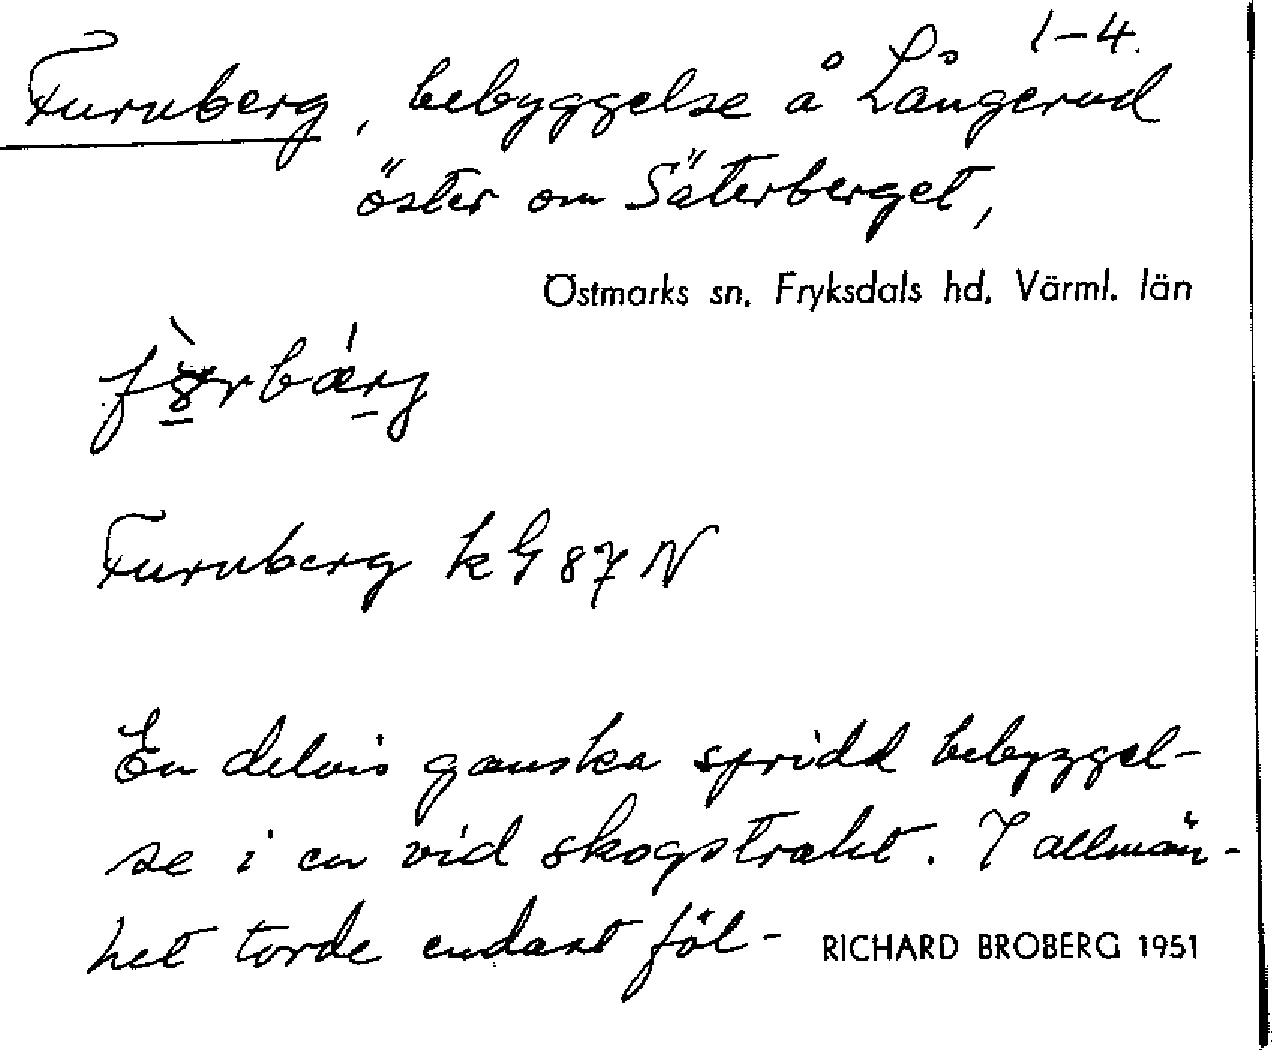 1-4.
Furuberg, bebyggelse å Långerud
öster om Säterberget,
Östmarks sn. Fryksdals hd. Värml. län
Furuberg kG 87 N
En delvis ganska spridd bebyggel-
se i en vid skogstrakt. I allmän-
het torde endast föl-
RICHARD BROBERG 1951